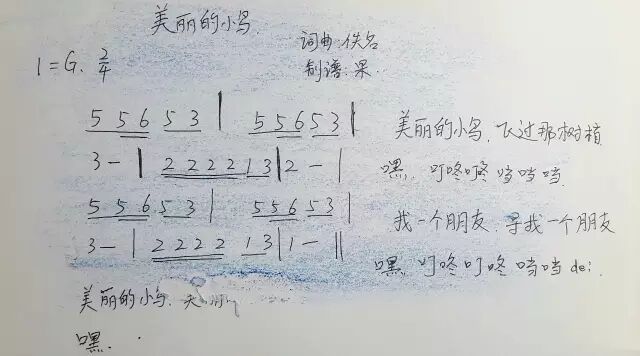 美丽的小鸟.
词曲:佚名
1=G. 2/4
制谱:果.
5 5 6 5 3 | 5 5 6 5 3 |
美丽的小鸟, 飞过那树梢
3 - | 2 2 2 2 1 3 | 2 - |
嘿, 叮咚叮咚 当当当.
5 5 6 5 3 | 5 5 6 5 3 |
找一个朋友, 寻找一个朋友
3 - | 2 2 2 2 1 3 | 1 - ||
嘿, 叮咚叮咚 当当 dei.
美丽的小鸟.
嘿. .